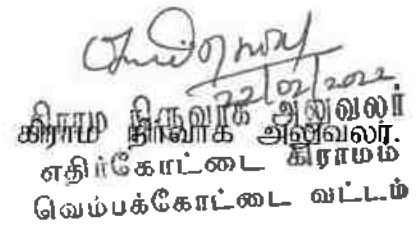 22/02/2022
கிராம நிருவாக அலுவலர்
கிராம நிர்வாக அலுவலர்.
எதிர்கோட்டை கிராமம்
வெம்பக்கோட்டை வட்டம்